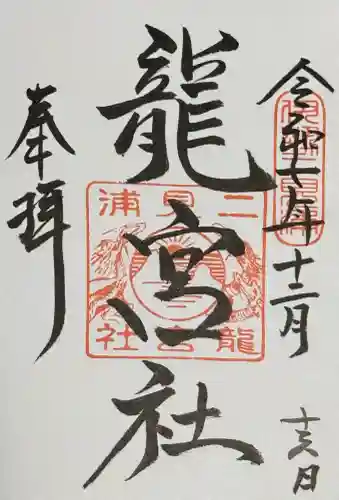 令和七年十二月
十六日
龍宮社
二見浦
龍宮社
奉拝